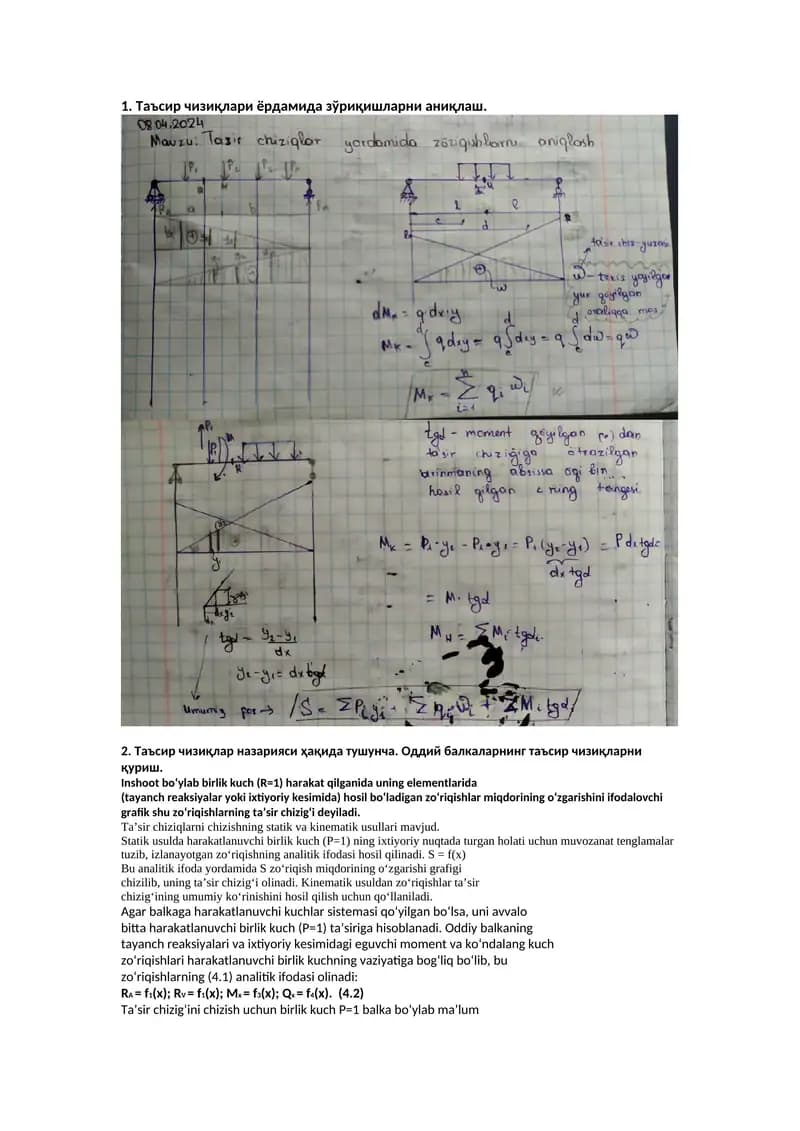 1. Таъсир чизиқлари ёрдамида зўриқишларни аниқлаш.
08.04.2024
Mavzu: Tasir chiziqlar yordamida zōriqishlarni aniqlash
P₁ P₂ P₂ Pₙ
a b
l l
c d
ta'sir chiz. yuzasi
w̄ - tekis yoyilgan
yuk qoyilgan
oraliqqa mos
w
dMₖ = q·dx·y
Mₖ = ∫ q dxy = q ∫ dxy = q ∫ dw = qw
Mₖ = Σ qᵢ wᵢ
i=1
tgα - moment qōyilgan (·) dan
ta'sir chiziģiga ōtkazilgan
urinmaning absissa oqi bin
hosil qilgan ∠ ning tangesi
y
Mₖ = P₁·y₂ - P₁·y₁ = P₁(y₂-y₁) = P dx tgα
dx tgα
= M·tgα
tgα = y₂-y₁ / dx
Mₖ = ΣMᵢ·tgαᵢ
y₂-y₁ = dx tgα
Umumiy → S = ΣPᵢyᵢ + Σqᵢwᵢ + ΣMᵢtgαᵢ
2. Таъсир чизиқлар назарияси ҳақида тушунча. Оддий балкаларнинг таъсир чизиқларни
қуриш.
Inshoot bo‘ylab birlik kuch (R=1) harakat qilganida uning elementlarida
(tayanch reaksiyalar yoki ixtiyoriy kesimida) hosil bo‘ladigan zo‘riqishlar miqdorining o‘zgarishini ifodalovchi
grafik shu zo‘riqishlarning ta’sir chizig‘i deyiladi.
Ta’sir chiziqlarni chizishning statik va kinematik usullari mavjud.
Statik usulda harakatlanuvchi birlik kuch (P=1) ning ixtiyoriy nuqtada turgan holati uchun muvozanat tenglamalar
tuzib, izlanayotgan zo‘riqishning analitik ifodasi hosil qilinadi. S = f(x)
Bu analitik ifoda yordamida S zo‘riqish miqdorining o‘zgarishi grafigi
chizilib, uning ta’sir chizig‘i olinadi. Kinematik usuldan zo‘riqishlar ta’sir
chizig‘ining umumiy ko‘rinishini hosil qilish uchun qo‘llaniladi.
Agar balkaga harakatlanuvchi kuchlar sistemasi qo‘yilgan bo‘lsa, uni avvalo
bitta harakatlanuvchi birlik kuch (P=1) ta’siriga hisoblanadi. Oddiy balkaning
tayanch reaksiyalari va ixtiyoriy kesimidagi eguvchi moment va ko‘ndalang kuch
zo‘riqishlari harakatlanuvchi birlik kuchning vaziyatiga bog‘liq bo‘lib, bu
zo‘riqishlarning (4.1) analitik ifodasi olinadi:
R_A = f₁(x); R_V = f₁(x); Mₓ = f₃(x); Qₓ = f₄(x). (4.2)
Ta’sir chizig‘ini chizish uchun birlik kuch P=1 balka bo‘ylab ma’lum